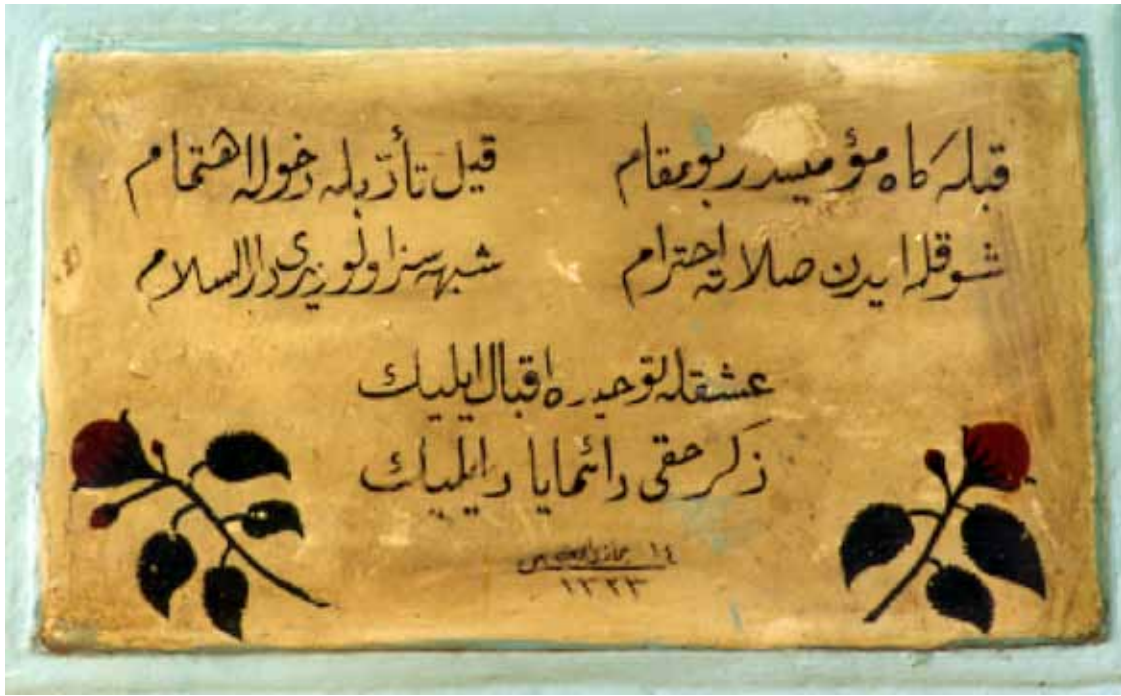 قبله كاه مؤمیندر بو مقام قیل تأدبله دخوله اهتمام
شوقله ایدن صلاته احترام شبهه سز اولور یری دار السلام
عشقله توحیده اقبال ایلیك
ذكر حقی دائما یاد ایلیك
١٤
١٣٢٣